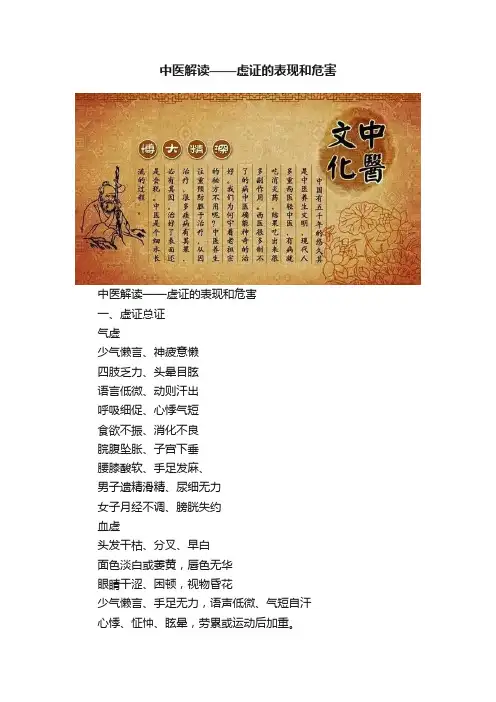 中医解读——虚证的表现和危害
中醫
文化
博大精深
中国有五千年的悠久其
是中医养生文明。现代人
多重西医轻中医，有病就
吃消炎药，结果吃出来很
多副作用。西医很多制不
了的病中医确能神奇的治
好。我们为何守着老祖宗
的秘方不用呢？中医养生
注重预防胜于治疗，从因
治疗。很多疾病有其果，
必有其因，治好了表面还
是会犯。中医是个细水长
流的过程。
中医解读——虚证的表现和危害
一、虚证总证
气虚
少气懒言、神疲意懒
四肢乏力、头晕目眩
语言低微、动则汗出
呼吸细促、心悸气短
食欲不振、消化不良
脘腹坠胀、子宫下垂
腰膝酸软、手足发麻、
男子遗精滑精、尿细无力
女子月经不调、膀胱失约
血虚
头发干枯、分叉、早白
面色淡白或萎黄，唇色无华
眼睛干涩、困顿，视物昏花
少气懒言、手足无力，语声低微、气短自汗
心悸、怔忡、眩晕，劳累或运动后加重。